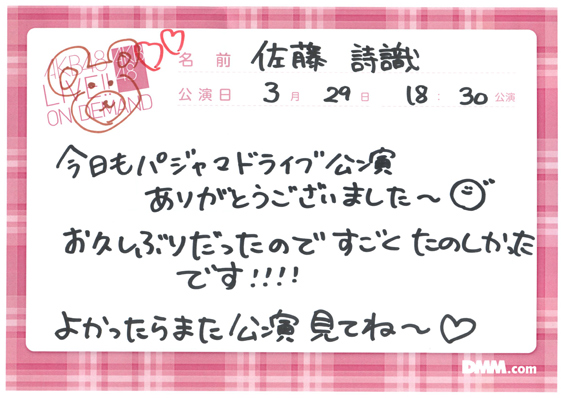 AKB48
LIVE!!
ON DEMAND
名前 佐藤 詩識
公演日 3月 29日 18:30公演
今日もパジャマドライブ公演
ありがとうございました〜
お久しぶりだったので すごく たのしかった
です!!!!
よかったらまた公演 見てね〜♡
DMM.com